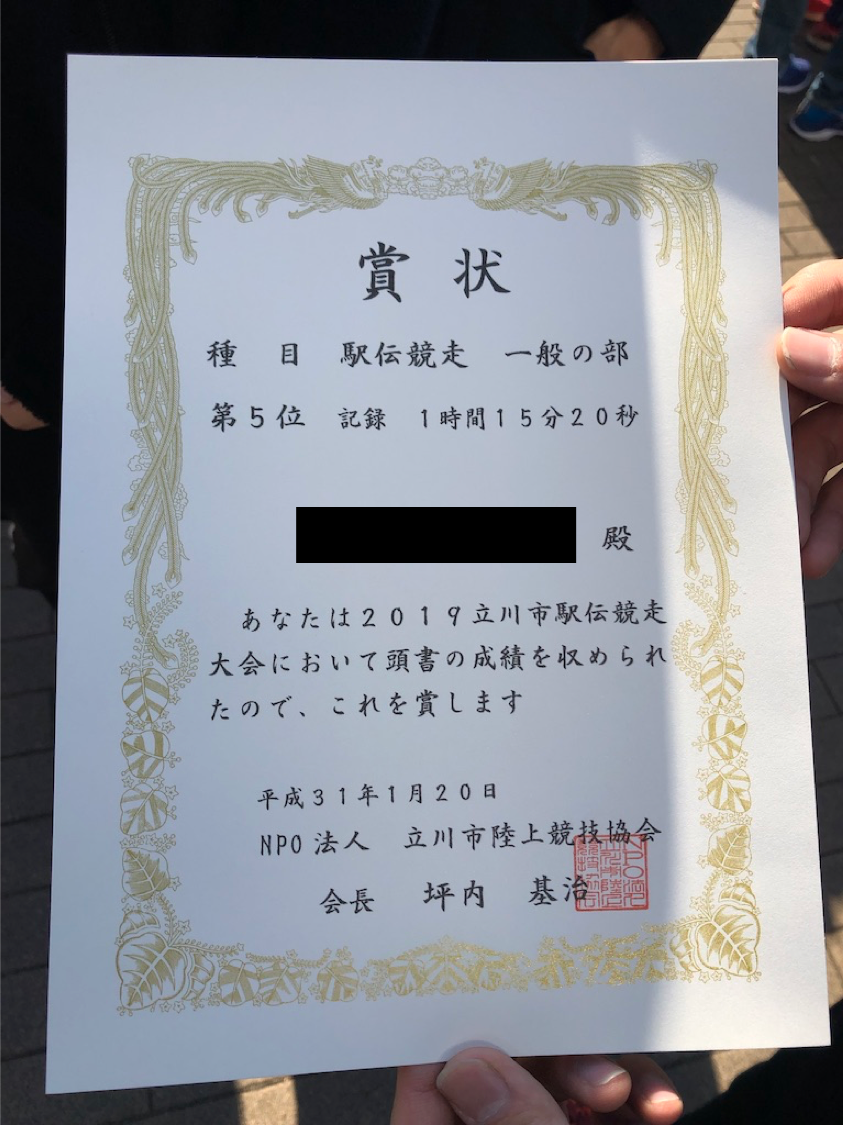 賞状
種目 駅伝競走 一般の部
第5位 記録 1時間15分20秒
殿
あなたは2019立川市駅伝競走
大会において頭書の成績を収められ
たので、これを賞します
平成31年1月20日
NPO法人 立川市陸上競技協会
会長 坪内 基治